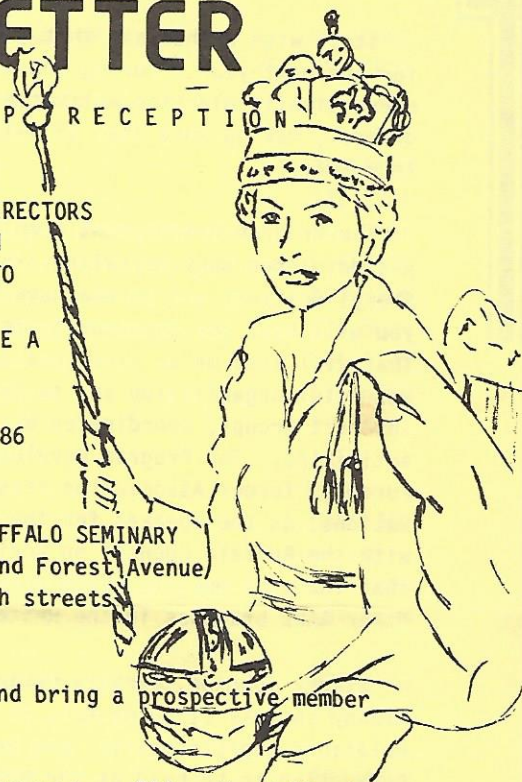 ETTER
P RECEPTION
RECTORS
TO
E A
86
FFALO SEMINARY
nd Forest Avenue
h streets
nd bring a prospective member